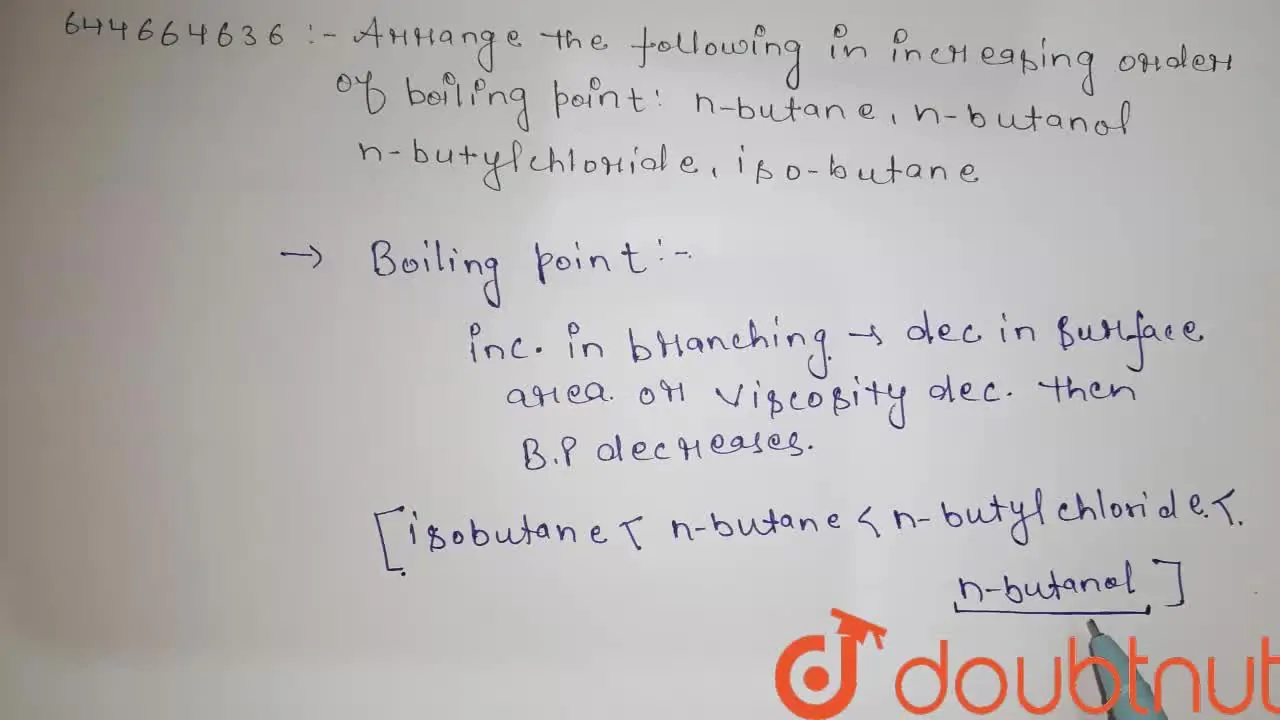 644664636 :- Arrange the following in increasing order
of boiling point: n-butane, n-butanol
n-butylchloride, iso-butane
→ Boiling point :-
inc. in branching → dec in surface
area. or viscosity dec. then
B.P decreases.
[isobutane < n-butane < n-butylchloride. <.
n-butanol]
doubtnut